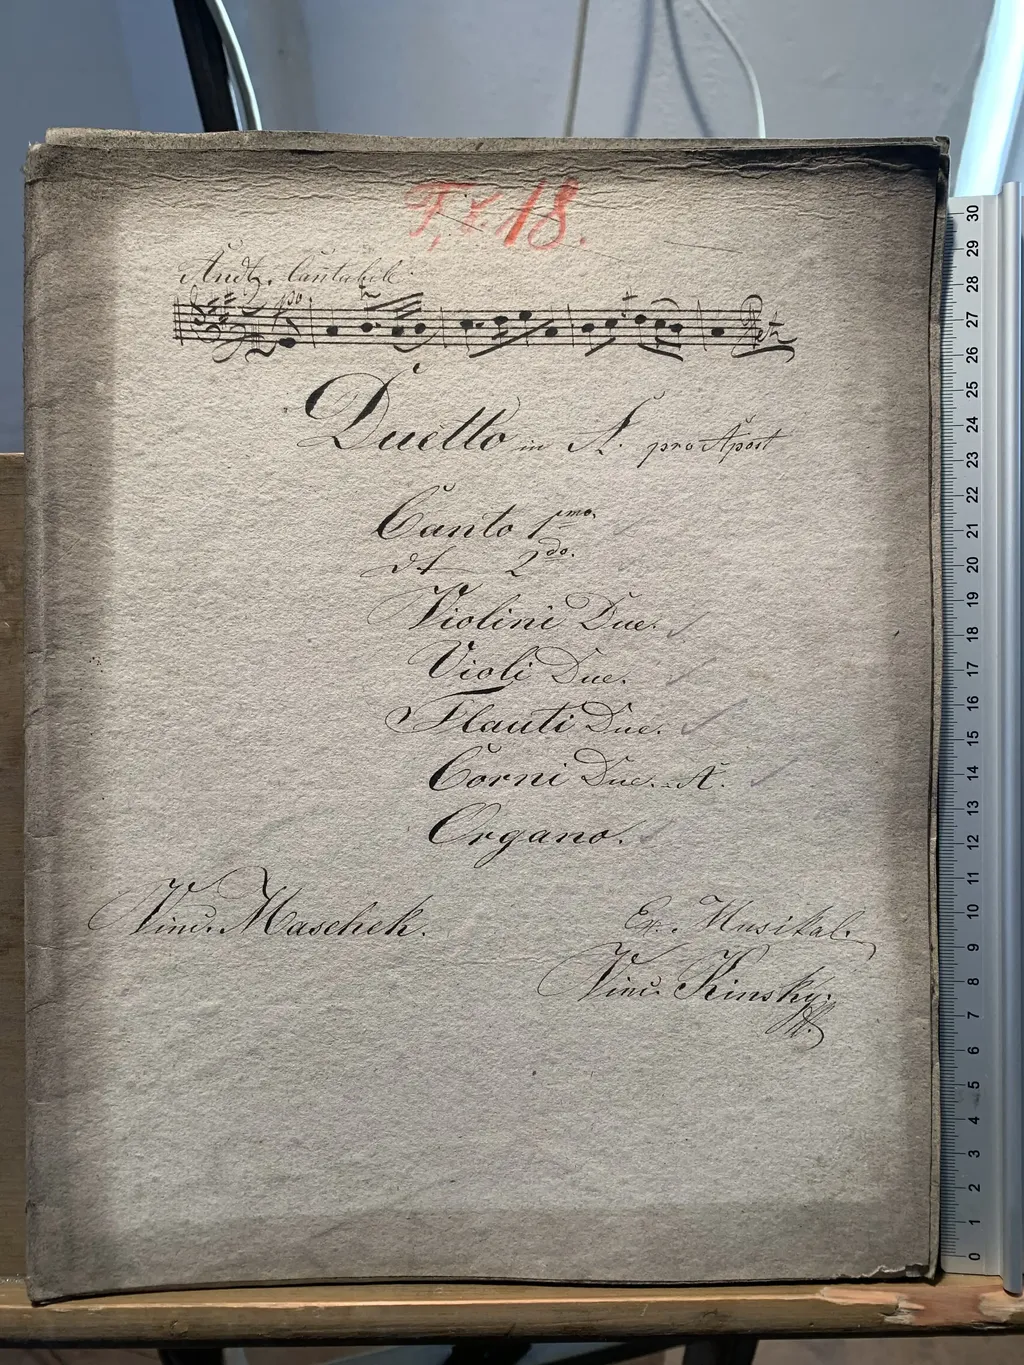 18.
Andte. Cantabile.
Duetto in A. pro Apost
Canto 1mo.
2do.
Violini Due.
Violi Due.
Flauti Due.
Corni Due. A.
Organo.
Vinc. Maschek.
Ex. Musikal.
Vinc. Kinsky.
30
29
28
27
26
25
24
23
22
21
20
19
18
17
16
15
14
13
12
11
10
9
8
7
6
5
4
3
2
1
0